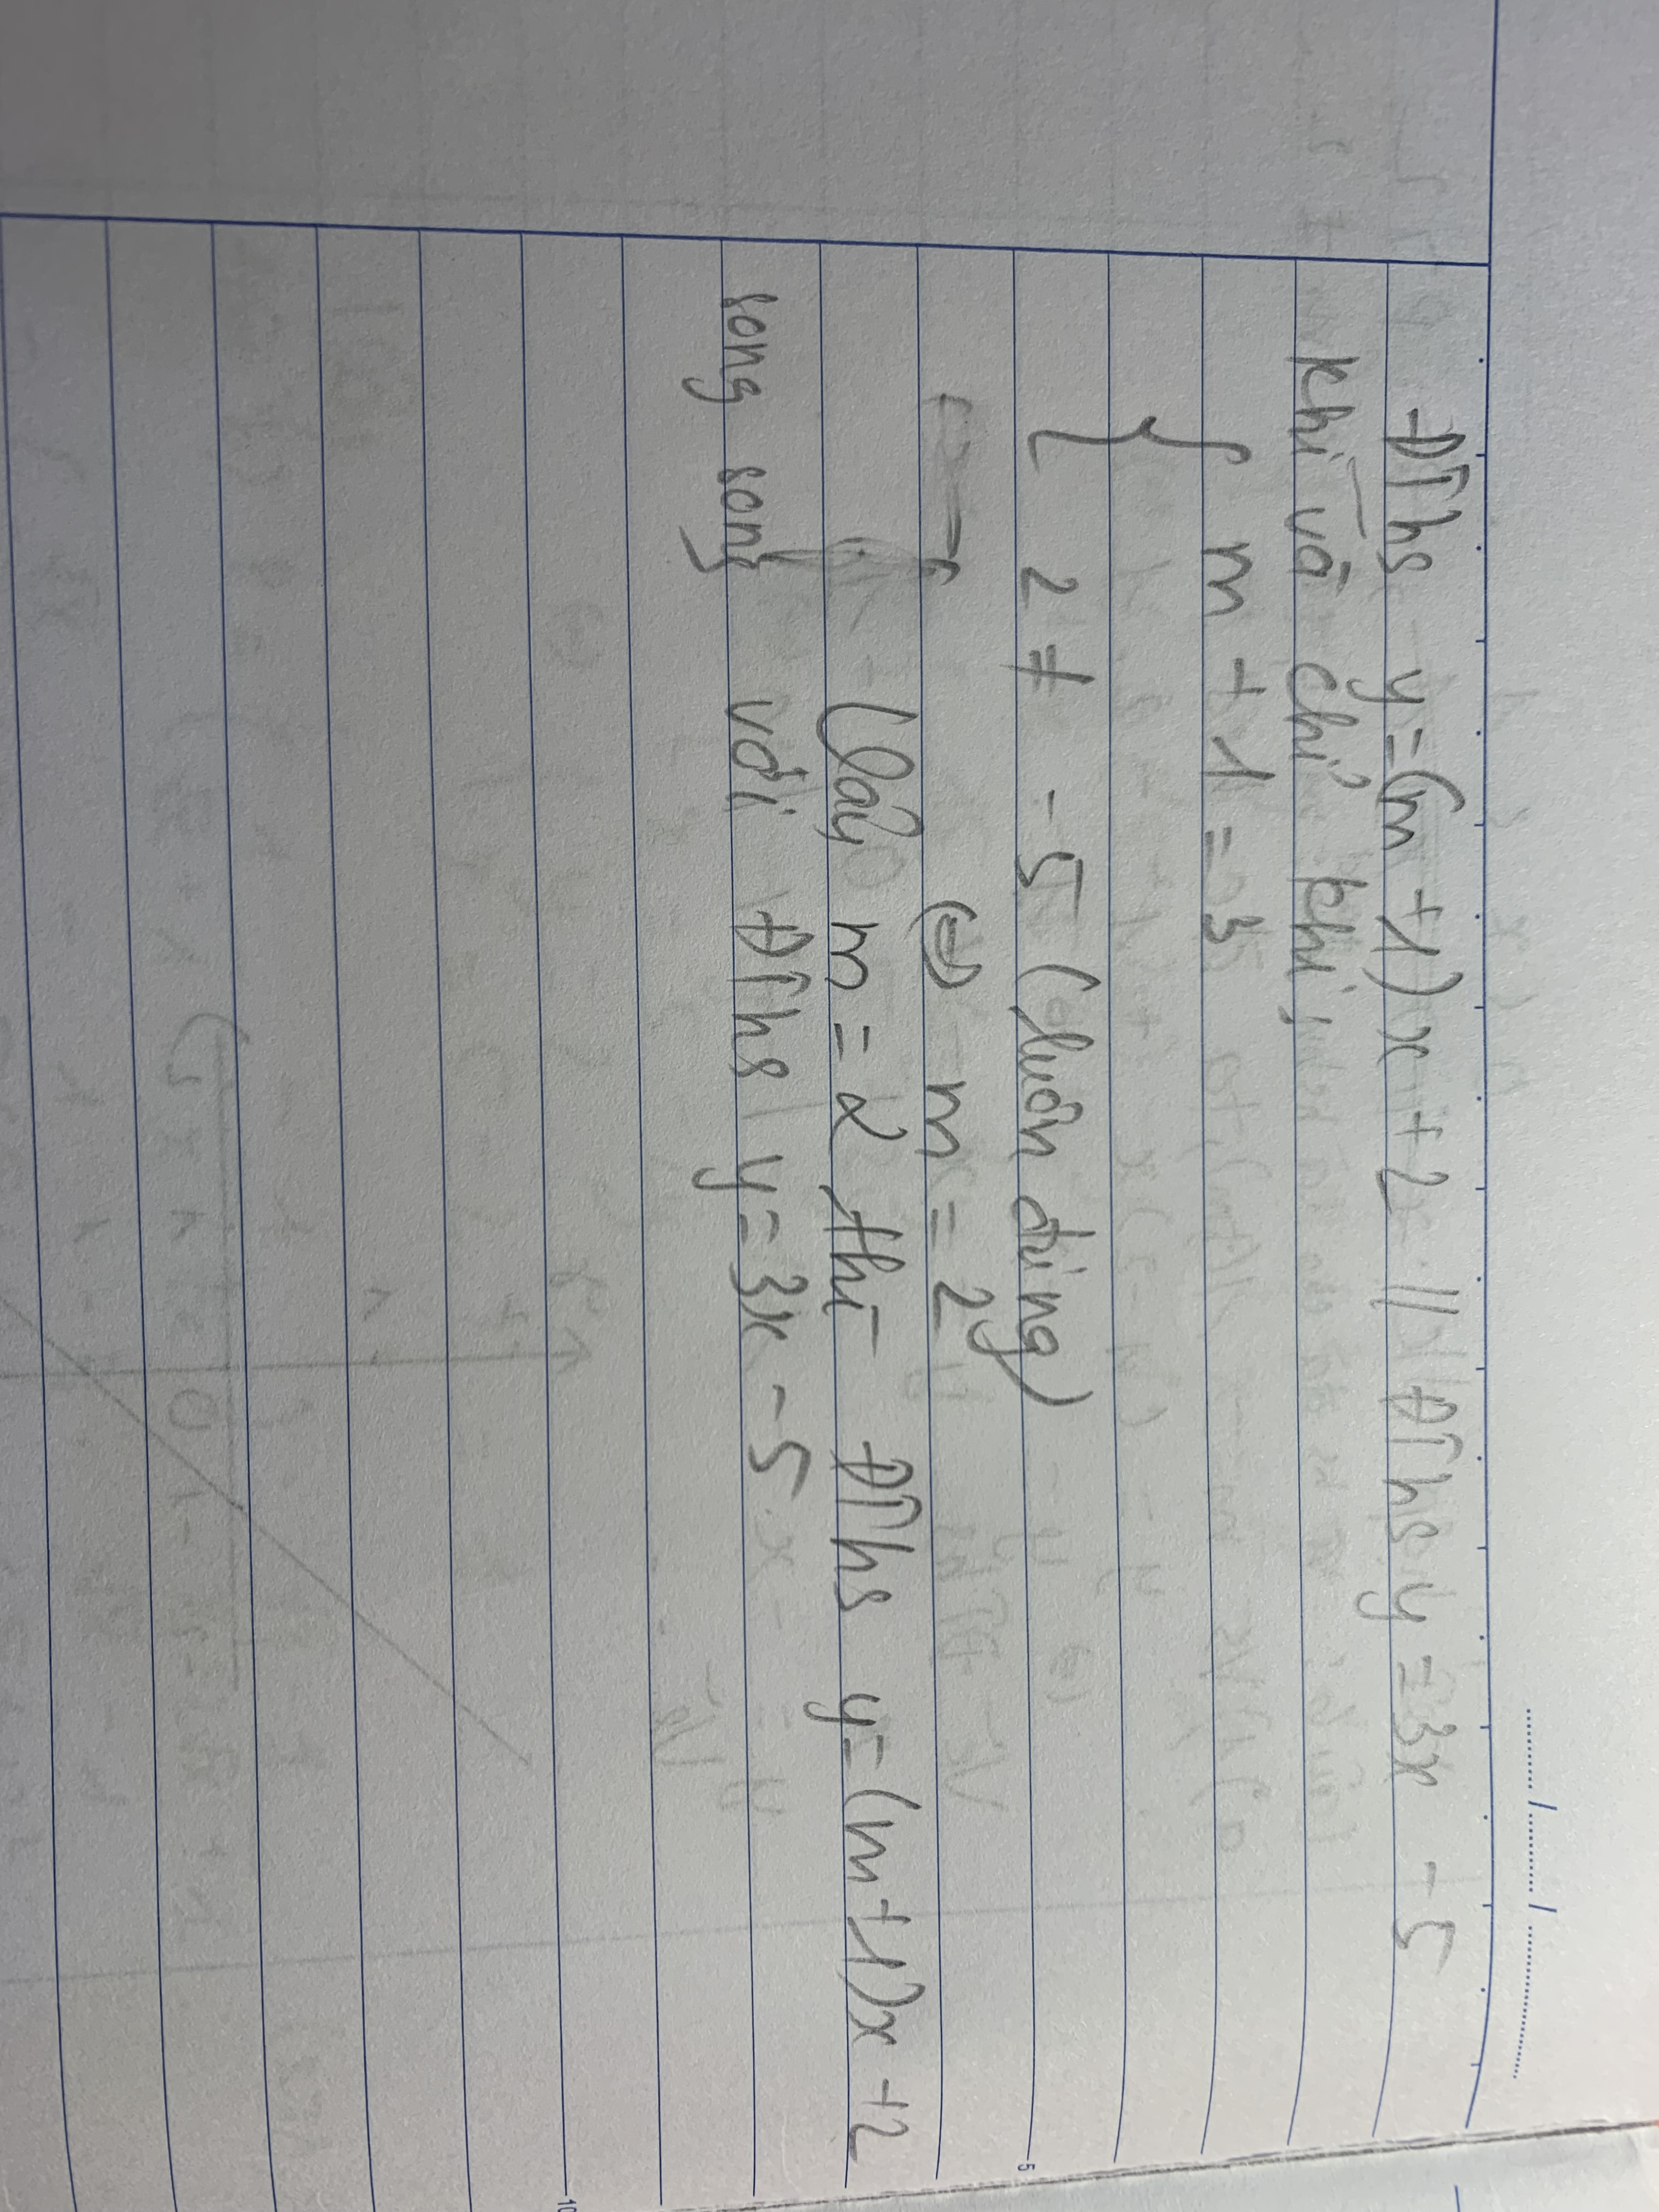 ĐThs y=(m+1)x+2 // ĐThs y=3x-5
khi và chỉ khi;
{ m+1=3
2 ≠ -5 (luôn đúng)
(=) m = 2
Vậy m=2 thì ĐThs y=(m+1)x+2
song song với ĐThs y=3x-5
5
10